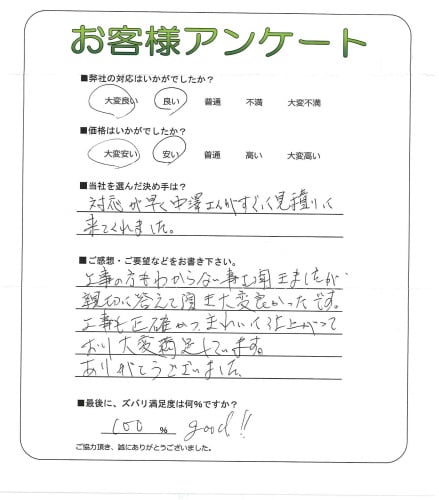 お客様アンケート
■弊社の対応はいかがでしたか？
大変良い 良い 普通 不満 大変不満
■価格はいかがでしたか？
大変安い 安い 普通 高い 大変高い
■当社を選んだ決め手は？
対応が早く中澤さんがすぐに見積りに
来てくれました。
■ご感想・ご要望などをお書き下さい。
工事の方もわからない事も聞きましたが
親切に答えて頂き大変良かったです。
工事も正確かつ、きれいに仕上がって
おり大変満足しています。
ありがとうございました。
■最後に、ズバリ満足度は何%ですか？
100 % good!!
ご協力頂き、誠にありがとうございました。